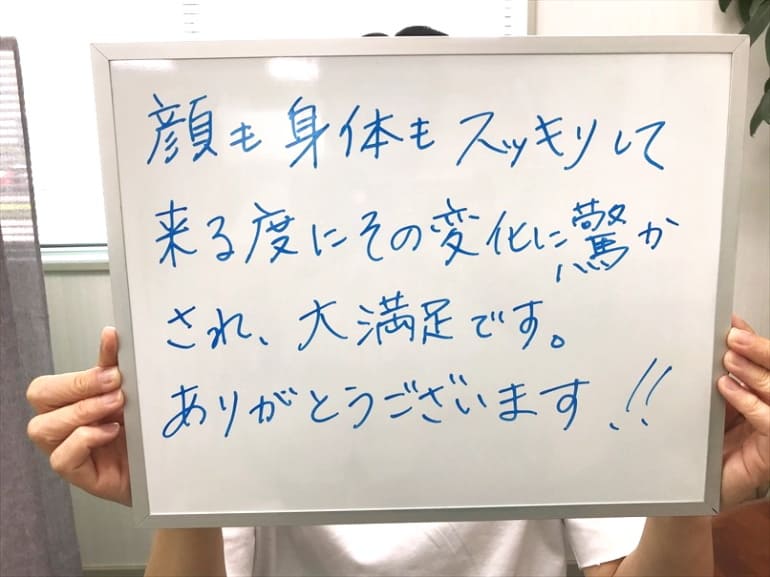 顔も身体もスッキリして
来る度にその変化に驚か
され、大満足です。
ありがとうございます!!